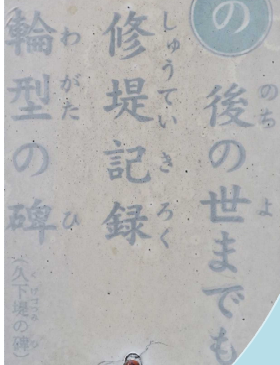 の
後の世までも
のちよ
修堤記録
しゅうていきろく
輪型の碑
わがたひ
(久下堤の碑)